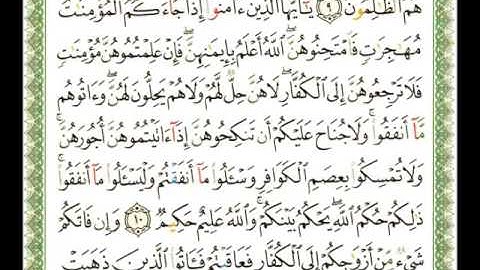 هُمُ الظَّٰلِمُونَ ۝٩ يَٰٓأَيُّهَا الَّذِينَ ءَامَنُوٓا إِذَا جَآءَكُمُ الْمُؤْمِنَٰتُ
مُهَٰجِرَٰتٍ فَامْتَحِنُوهُنَّ ۖ اللَّهُ أَعْلَمُ بِإِيمَٰنِهِنَّ ۖ فَإِنْ عَلِمْتُمُوهُنَّ مُؤْمِنَٰتٍ
فَلَا تَرْجِعُوهُنَّ إِلَى الْكُفَّارِ ۖ لَا هُنَّ حِلٌّ لَّهُمْ وَلَا هُمْ يَحِلُّونَ لَهُنَّ ۖ وَءَاتُوهُم
مَّآ أَنفَقُوا ۚ وَلَا جُنَاحَ عَلَيْكُمْ أَن تَنكِحُوهُنَّ إِذَآ ءَاتَيْتُمُوهُنَّ أُجُورَهُنَّ ۚ
وَلَا تُمْسِكُوا بِعِصَمِ الْكَوَافِرِ وَسْـَٔلُوا مَآ أَنفَقْتُمْ وَلْيَسْـَٔلُوا مَآ أَنفَقُوا ۚ
ذَٰلِكُمْ حُكْمُ اللَّهِ ۖ يَحْكُمُ بَيْنَكُمْ ۚ وَاللَّهُ عَلِيمٌ حَكِيمٌ ۝١٠ وَإِن فَاتَكُمْ
شَىْءٌ مِّنْ أَزْوَٰجِكُمْ إِلَى الْكُفَّارِ فَعَاقَبْتُمْ فَـَٔاتُوا الَّذِينَ ذَهَبَتْ